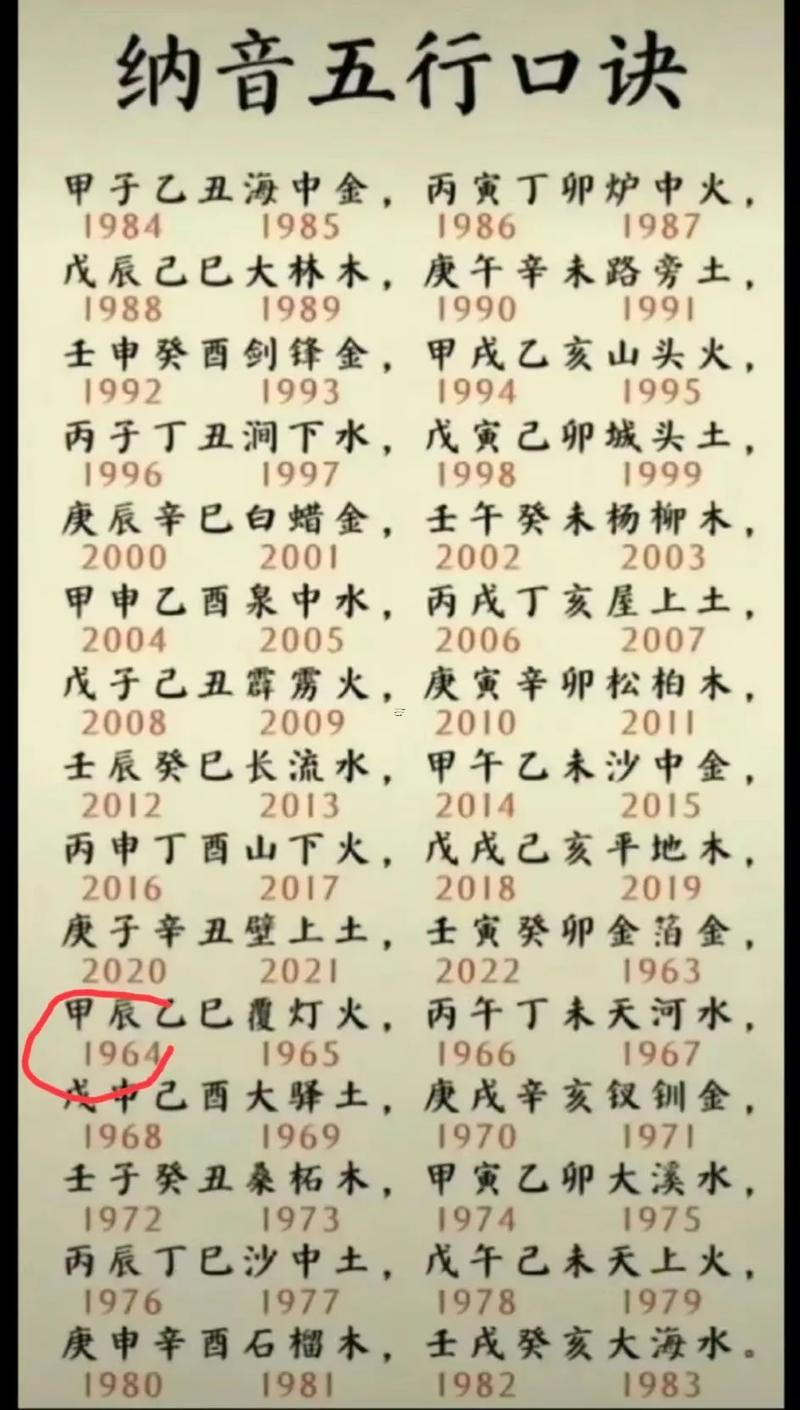 纳音五行口诀
甲子乙丑海中金，丙寅丁卯炉中火，
1984 1985 1986 1987
戊辰己巳大林木，庚午辛未路旁土，
1988 1989 1990 1991
壬申癸酉剑锋金，甲戌乙亥山头火，
1992 1993 1994 1995
丙子丁丑涧下水，戊寅己卯城头土，
1996 1997 1998 1999
庚辰辛巳白蜡金，壬午癸未杨柳木，
2000 2001 2002 2003
甲申乙酉泉中水，丙戌丁亥屋上土，
2004 2005 2006 2007
戊子己丑霹雳火，庚寅辛卯松柏木，
2008 2009 2010 2011
壬辰癸巳长流水，甲午乙未沙中金，
2012 2013 2014 2015
丙申丁酉山下火，戊戌己亥平地木，
2016 2017 2018 2019
庚子辛丑壁上土，壬寅癸卯金箔金，
2020 2021 2022 1963
甲辰乙巳覆灯火，丙午丁未天河水，
1964 1965 1966 1967
戊申己酉大驿土，庚戌辛亥钗钏金，
1968 1969 1970 1971
壬子癸丑桑柘木，甲寅乙卯大溪水，
1972 1973 1974 1975
丙辰丁巳沙中土，戊午己未天上火，
1976 1977 1978 1979
庚申辛酉石榴木，壬戌癸亥大海水。
1980 1981 1982 1983